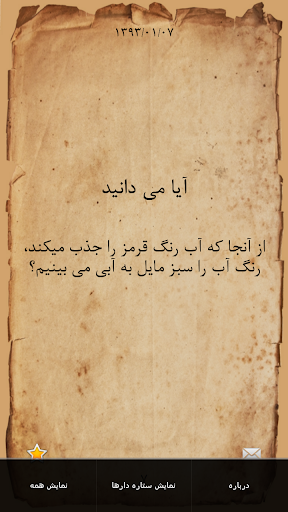 ۱۳۹۳/۰۱/۰۷
آیا می دانید
از آنجا که آب رنگ قرمز را جذب میکند،
رنگ آب را سبز مایل به آبی می بینیم؟
درباره
نمایش ستاره دارها
نمایش همه